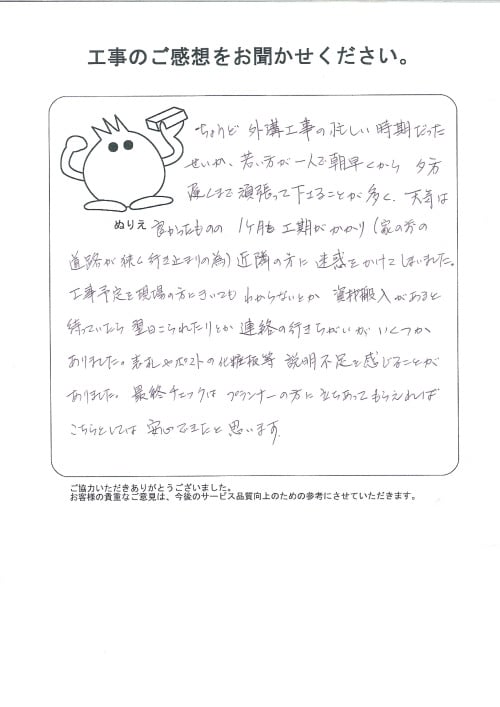 工事のご感想をお聞かせください。
ちょうど外構工事の忙しい時期だった
せいか、若い方が一人で朝早くから夕方
遅くまで頑張って下さることが多く、天気は
ぬりえ
良かったものの 1ヶ月も工期がかかり（家の前の
道路が狭く行き止まりの為）近隣の方に迷惑をかけてしまいました。
工事予定を現場の方にきいてもわからないとか 資材搬入があると
待っていたら翌日こられたりとか連絡の行きちがいがいくつか
ありました。表札やポストの化粧板等 説明不足を感じることが
ありました。最終チェックはプランナーの方に立ちあってもらえれば
こちらとしては安心できたと思います。
ご協力いただきありがとうございました。
お客様の貴重なご意見は、今後のサービス品質向上のための参考にさせていただきます。